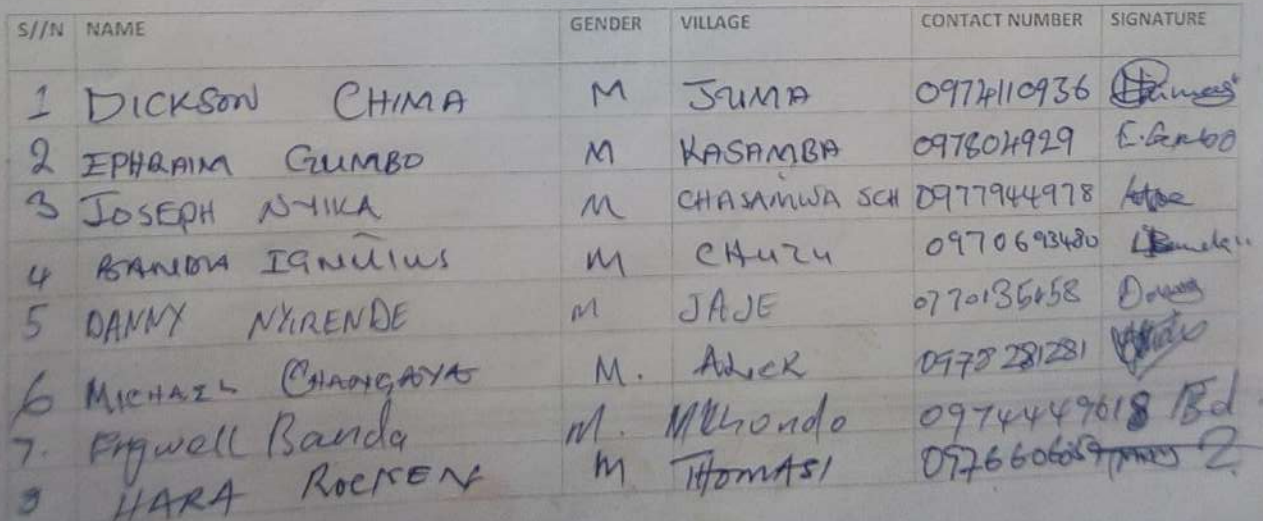 S//N NAME GENDER VILLAGE CONTACT NUMBER SIGNATURE
1 DICKSON CHIMA M JUMA 0974110936
2 EPHRAIM GUMBO M KASAMBA 097804929 E.Gumbo
3 JOSEPH NYIKA M CHASAMWA SCH 0977944978
4 BANDA M CHUZU 0970693480
5 DANNY NYIRENDE M JAJE Danny
6 MICHAEL M. ALICK 0978281281
7. Banda M. 0974449618 Bd
HARA M THOMASI